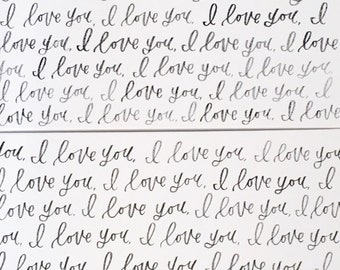 I love you, I love you, I love you, I
love you, I love you, I love you, I love
you, I love you, I love you, I love you,
I love you, I love you, I love you, I
love you, I love you, I love you, I love
you, I love you, I love you, I love
I love you, I love you, I love you,
I love you, I love you, I love you,
you, I love you, I love you, I love
I love you, I love you, I love you,